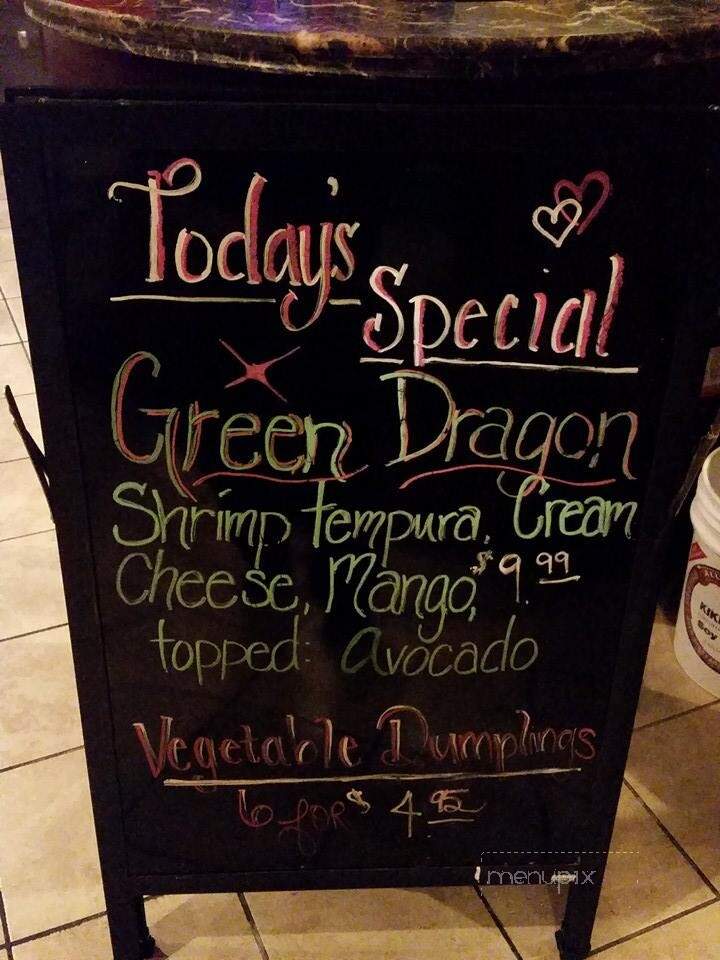 Today's
Special
Green Dragon
Shrimp tempura, Cream
Cheese, Mango, $9.99
topped: Avocado
Vegetable Dumplings
6 for $4.95
menupix